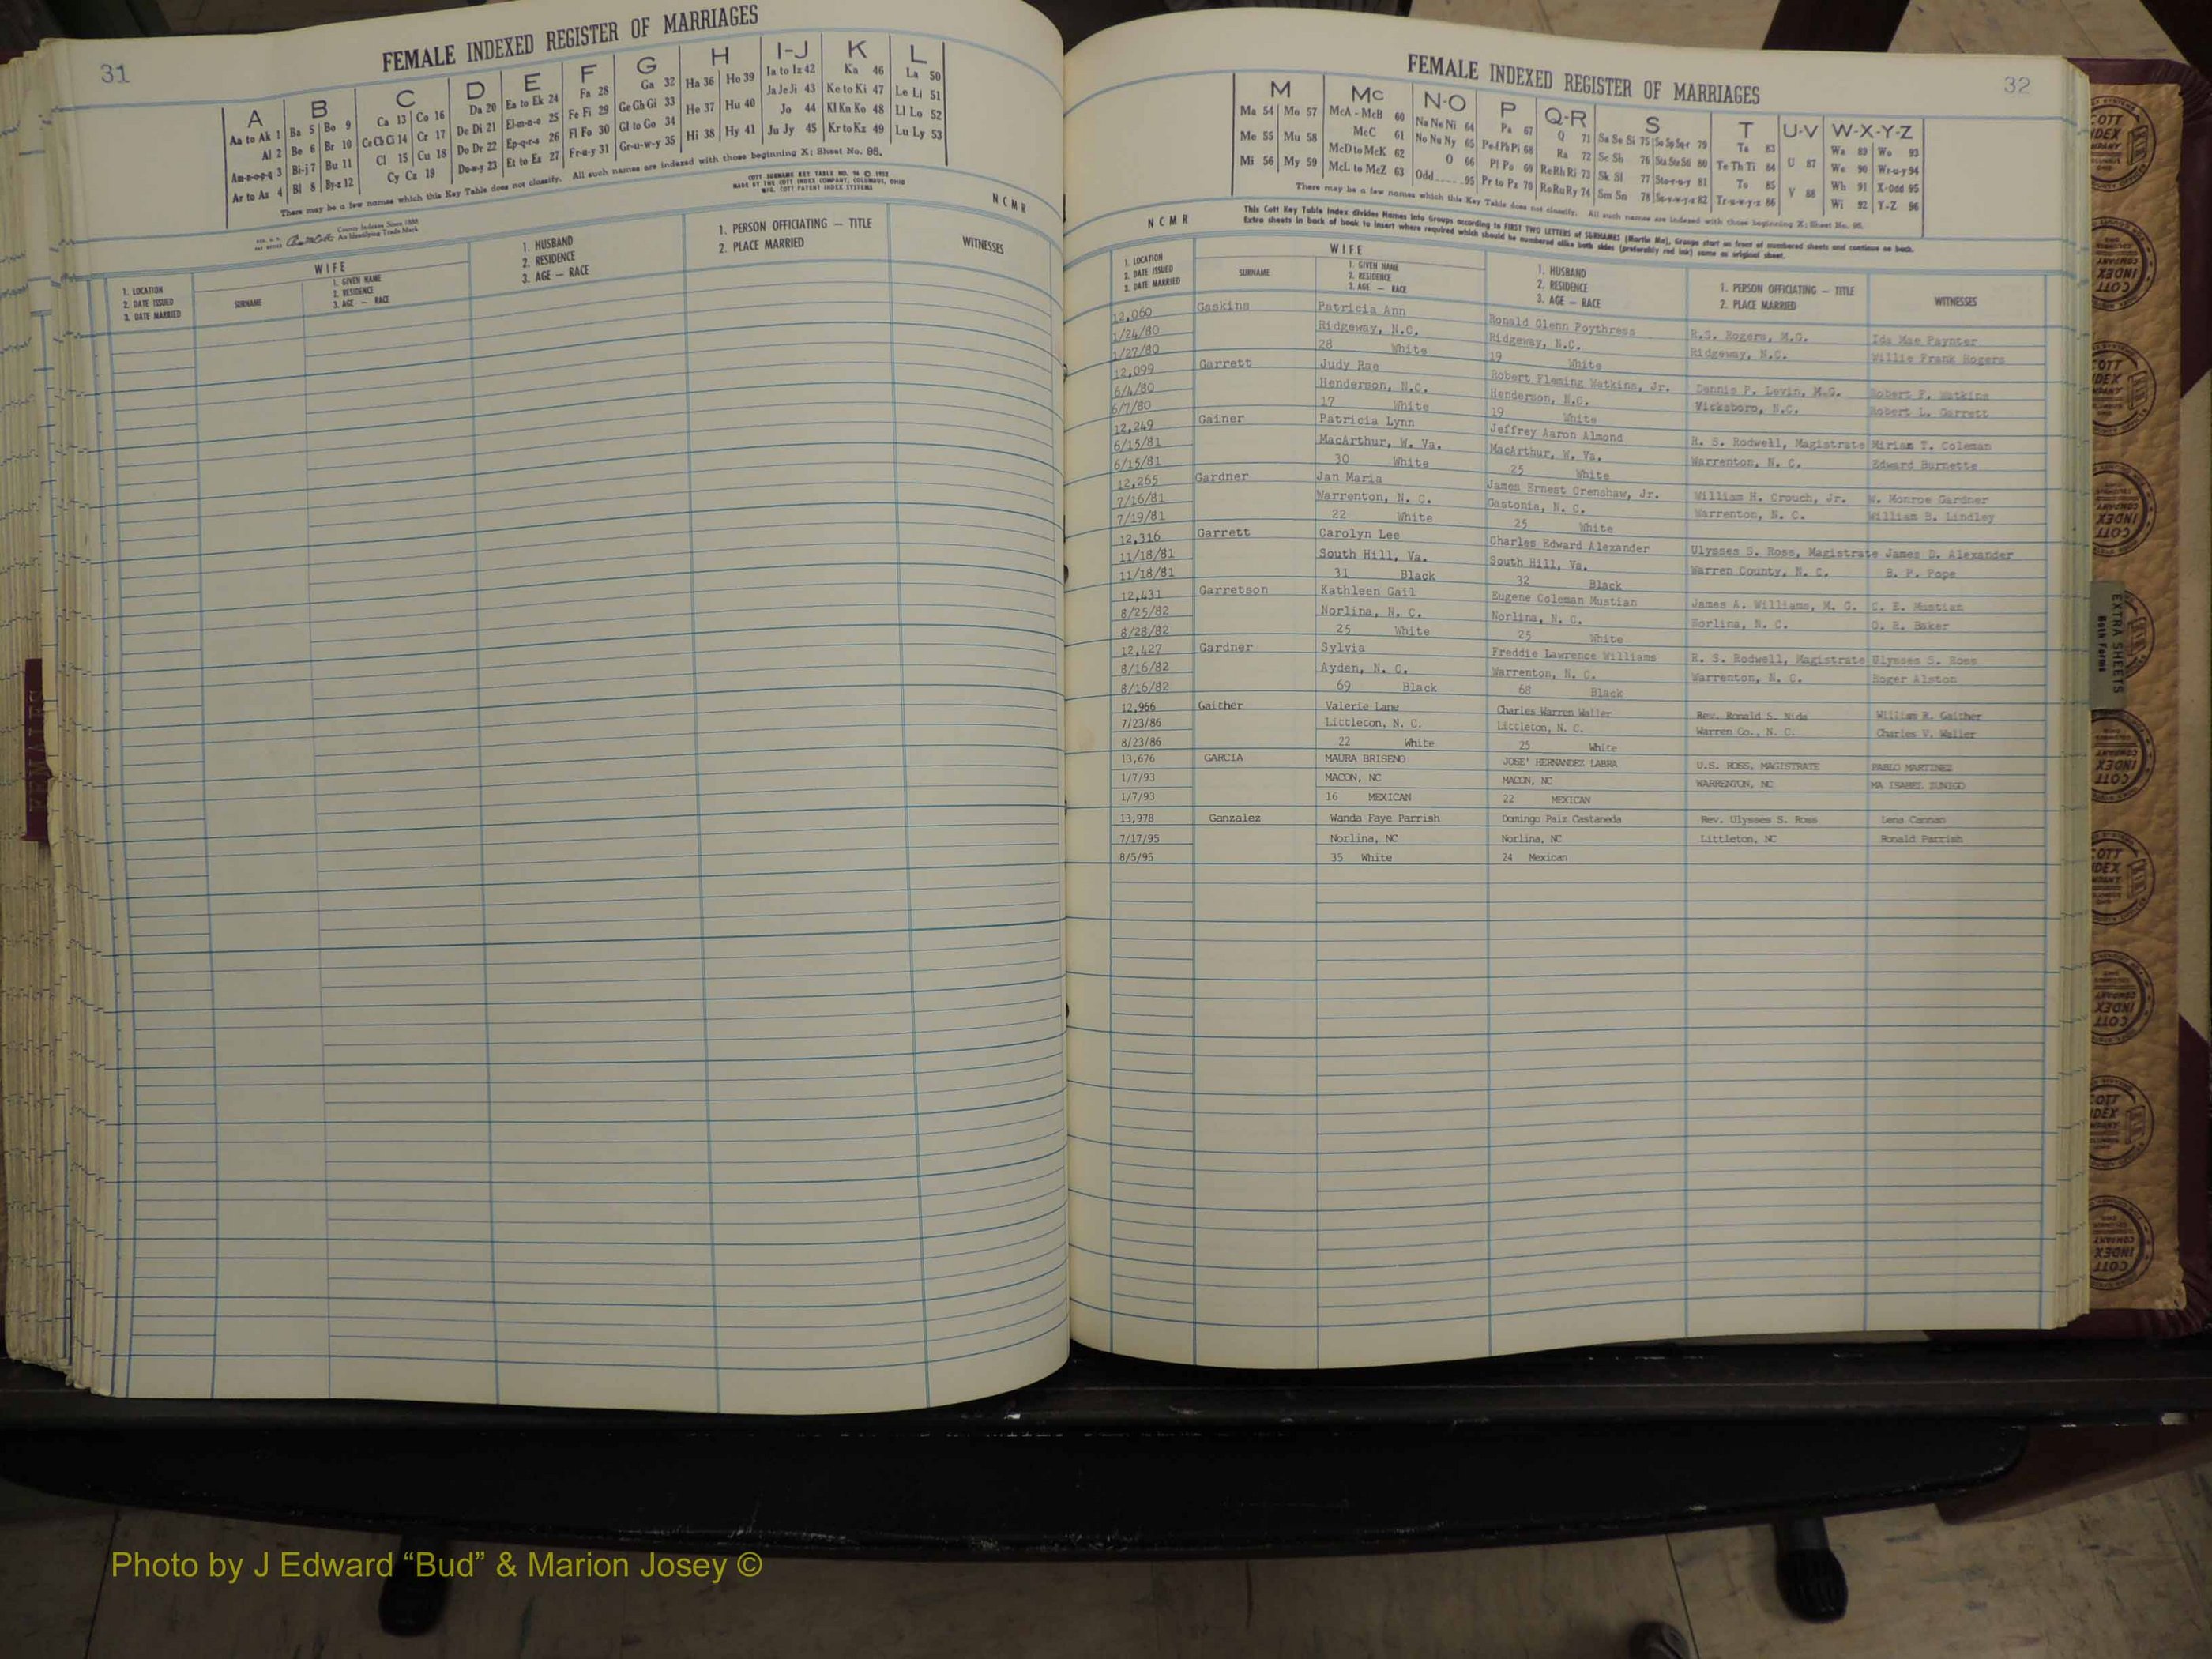 31
FEMALE INDEXED REGISTER OF MARRIAGES
A B C D E F G H I-J K L
Aa to Ak 1 Ba 5 Bo 9 Ca 13 Co 16 Da 20 Ea to Ek 24 Fa 28 Ga 32 Ha 36 Ho 39 Ia to Iz 42 Ka 46 La 50
Al 2 Be 6 Br 10 Ce Ch Ci 14 Cr 17 De Di 21 El-m-n-o 25 Fe Fi 29 Ge Gh Gi 33 He 37 Hu 40 Ja Je Ji 43 Ke to Ki 47 Le Li 51
Am-n-o-p-q 3 Bi-j 7 Bu 11 Cl 15 Cu 18 Do Dr 22 Ep-q-r-s 26 Fl Fo 30 Gl to Go 34 Hi 38 Hy 41 Jo 44 Kl Kn Ko 48 Ll Lo 52
Ar to As 4 Bl 8 By-z 12 Cy Cz 19 Du-w-y 23 Et to Ez 27 Fr-u-y 31 Gr-u-w-y 35 Ju Jy 45 Kr to Kz 49 Lu Ly 53
There may be a few names which this Key Table does not classify. All such names are indexed with those beginning X; Sheet No. 95.
COTT SURNAME KEY TABLE NO. 96 © 1952
MADE BY THE COTT INDEX COMPANY, COLUMBUS, OHIO
MFG. COTT PATENT INDEX SYSTEMS
County Indexes Since 1888
An Identifying Trade Mark
NCMR
1. LOCATION
2. DATE ISSUED
3. DATE MARRIED
WIFE
SURNAME
1. GIVEN NAME
2. RESIDENCE
3. AGE — RACE
1. HUSBAND
2. RESIDENCE
3. AGE — RACE
1. PERSON OFFICIATING — TITLE
2. PLACE MARRIED
WITNESSES
FEMALE INDEXED REGISTER OF MARRIAGES
32
M Mc N-O P Q-R S T U-V W-X-Y-Z
Ma 54 Mo 57 McA - McB 60 Na Ne Ni 64 Pa 67 Q 71 Sa Se Si 75 So Sp Sq-r 79 Ta 83 Wa 89 Wo 93
Me 55 Mu 58 McC 61 No Nu Ny 65 Pe-f Ph Pi 68 Ra 72 Sc Sh 76 Sta Ste Sti 80 Te Th Ti 84 U 87 We 90 Wr-u-y 94
Mi 56 My 59 McD to McK 62 O 66 Pl Po 69 Re Rh Ri 73 Sk Sl 77 Sto-r-u-y 81 To 85 Wh 91 X-Odd 95
McL to McZ 63 Odd 95 Pr to Pz 70 Ro Ru Ry 74 Sm Sn 78 Su-v-w-y-z 82 Tr-u-w-y-z 86 V 88 Wi 92 Y-Z 96
There may be a few names which this Key Table does not classify. All such names are indexed with those beginning X; Sheet No. 95.
This Cott Key Table Index divides Names into Groups according to FIRST TWO LETTERS of SURNAMES (Martin Ma), Groups start on front of numbered sheets and continue on back.
Extra sheets in back of book to insert where required which should be numbered alike both sides (preferably red ink) same as original sheet.
NCMR
1. LOCATION
2. DATE ISSUED
3. DATE MARRIED
WIFE
SURNAME
1. GIVEN NAME
2. RESIDENCE
3. AGE — RACE
1. HUSBAND
2. RESIDENCE
3. AGE — RACE
1. PERSON OFFICIATING — TITLE
2. PLACE MARRIED
WITNESSES
12,060 Gaskins Patricia Ann Ronald Glenn Poythress R.S. Rogers, M.G. Ida Mae Paynter
1/24/80 Ridgeway, N.C. Ridgeway, N.C. Ridgeway, N.C. Willie Frank Rogers
1/27/80 28 White 19 White
12,099 Garrett Judy Rae Robert Fleming Watkins, Jr. Dennis P. Levin, M.G. Robert F. Watkins
6/4/80 Henderson, N.C. Henderson, N.C. Vicksboro, N.C. Robert L. Garrett
6/7/80 17 White 19 White
12,249 Gainer Patricia Lynn Jeffrey Aaron Almond R. S. Rodwell, Magistrate Miriam T. Coleman
6/15/81 MacArthur, W. Va. MacArthur, W. Va. Warrenton, N. C. Edward Burnette
6/15/81 30 White 25 White
12,265 Gardner Jan Maria James Ernest Crenshaw, Jr. William H. Crouch, Jr. W. Monroe Gardner
7/16/81 Warrenton, N. C. Gastonia, N. C. Warrenton, N. C. William B. Lindley
7/19/81 22 White 25 White
12,316 Garrett Carolyn Lee Charles Edward Alexander Ulysses S. Ross, Magistrate James D. Alexander
11/18/81 South Hill, Va. South Hill, Va. Warren County, N. C. B. P. Pope
11/18/81 31 Black 32 Black
12,431 Garretson Kathleen Gail Eugene Coleman Mustian James A. Williams, M. G. C. E. Mustian
8/25/82 Norlina, N. C. Norlina, N. C. Norlina, N. C. O. R. Baker
8/28/82 25 White 25 White
12,427 Gardner Sylvia Freddie Lawrence Williams R. S. Rodwell, Magistrate Ulysses S. Ross
8/16/82 Ayden, N. C. Warrenton, N. C. Warrenton, N. C. Roger Alston
8/16/82 69 Black 68 Black
12,966 Gaither Valerie Lane Charles Warren Waller Rev. Ronald S. Nids William R. Gaither
7/23/86 Littleton, N. C. Littleton, N. C. Warren Co., N. C. Charles V. Waller
8/23/86 22 White 25 White
13,676 GARCIA MAURA BRISENO JOSE' HERNANDEZ LABRA U.S. ROSS, MAGISTRATE PABLO MARTINEZ
1/7/93 MACON, NC MACON, NC WARRENTON, NC MA ISABEL ZUNIGO
1/7/93 16 MEXICAN 22 MEXICAN
13,978 Ganzalez Wanda Faye Parrish Domingo Paiz Castaneda Rev. Ulysses S. Ross Lena Cannan
7/17/95 Norlina, NC Norlina, NC Littleton, NC Ronald Parrish
8/5/95 35 White 24 Mexican
EXTRA SHEETS
Both Forms
COTT
INDEX
COMPANY
Photo by J Edward “Bud” & Marion Josey ©